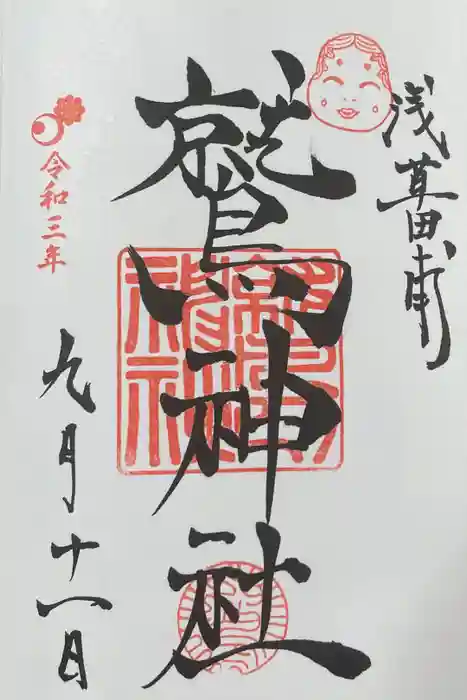 浅草田甫
鷲神社
令和三年
九月十一日